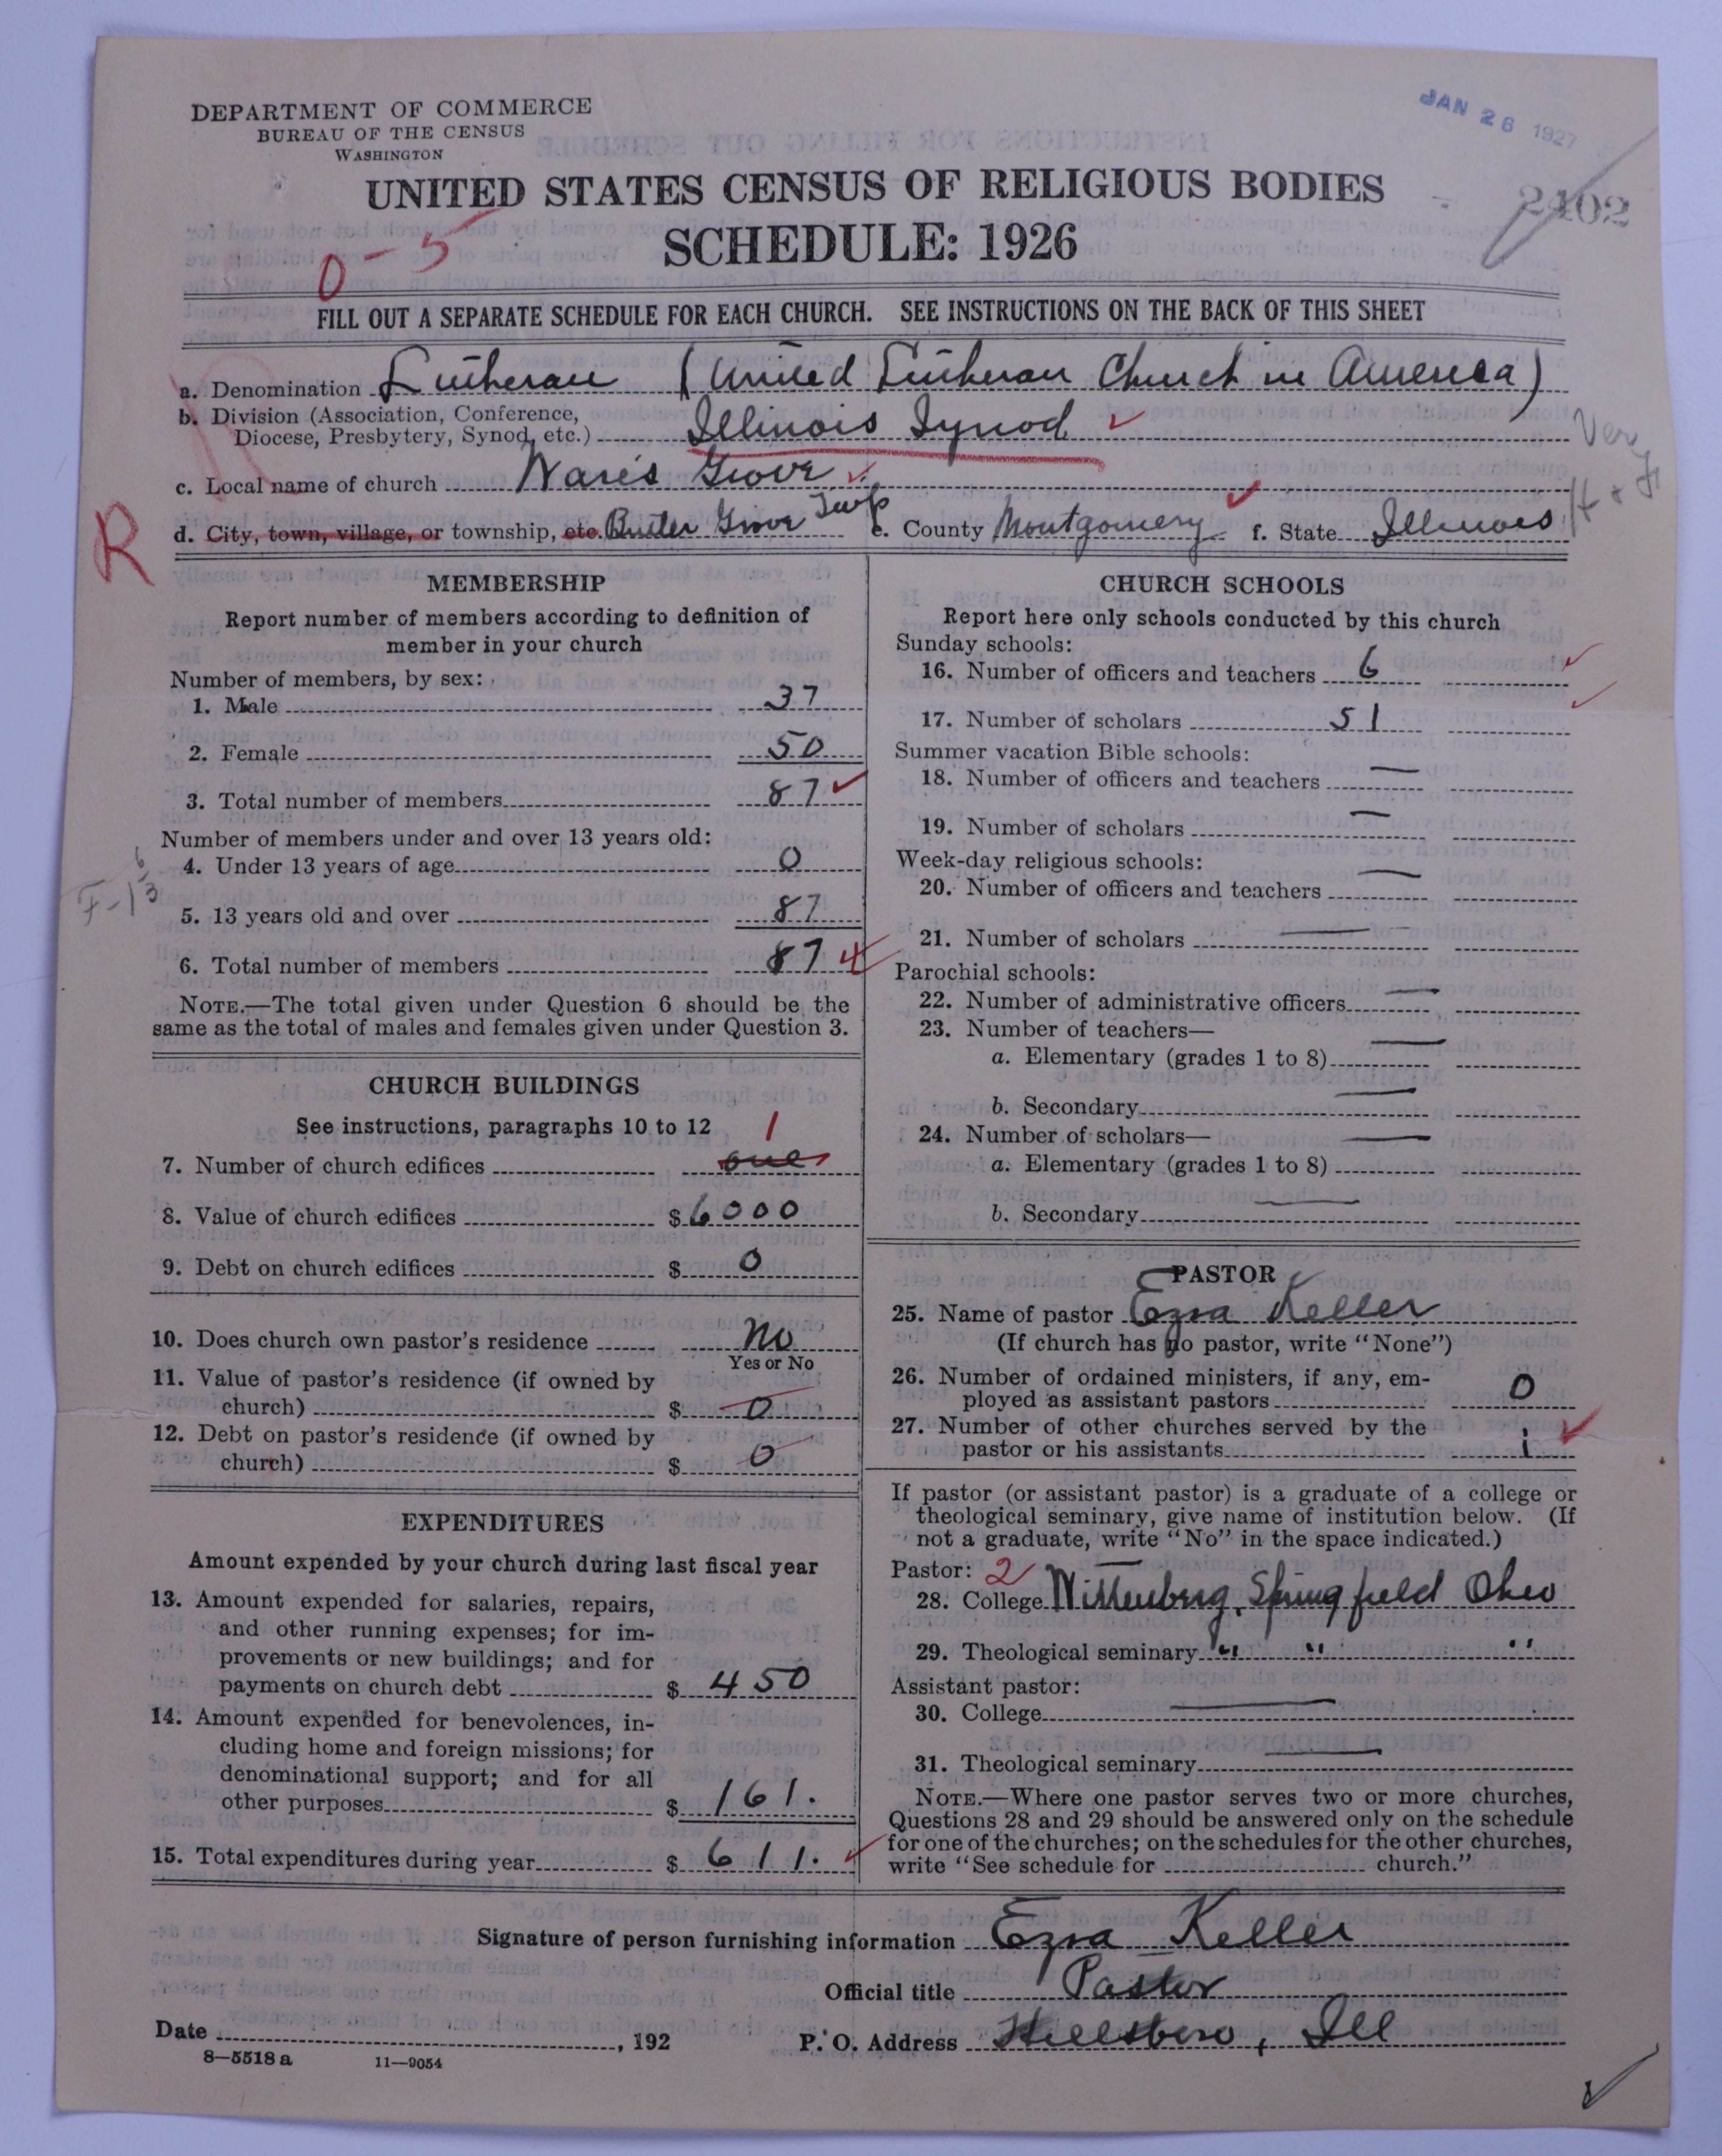 DEPARTMENT OF COMMERCE
BUREAU OF THE CENSUS
WASHINGTON
JAN 26 1927
2402
UNITED STATES CENSUS OF RELIGIOUS BODIES
SCHEDULE: 1926
0-5
FILL OUT A SEPARATE SCHEDULE FOR EACH CHURCH. SEE INSTRUCTIONS ON THE BACK OF THIS SHEET
a. Denomination Lutheran (United Lutheran Church in America)
b. Division (Association, Conference,
Diocese, Presbytery, Synod, etc.) Illinois Synod
c. Local name of church Ware's Grove
R
d. City, town, village, or township, etc. Butler Grove Twp e. County Montgomery f. State Illinois
MEMBERSHIP
Report number of members according to definition of
member in your church
Number of members, by sex:
1. Male 37
2. Female 50
3. Total number of members 87
Number of members under and over 13 years old:
4. Under 13 years of age 0
5. 13 years old and over 87
6. Total number of members 87
NOTE.—The total given under Question 6 should be the
same as the total of males and females given under Question 3.
CHURCH BUILDINGS
See instructions, paragraphs 10 to 12
1
7. Number of church edifices one
8. Value of church edifices $ 6000
9. Debt on church edifices $ 0
10. Does church own pastor's residence No
Yes or No
11. Value of pastor's residence (if owned by
church) $ 0
12. Debt on pastor's residence (if owned by
church) $ 0
EXPENDITURES
Amount expended by your church during last fiscal year
13. Amount expended for salaries, repairs,
and other running expenses; for im-
provements or new buildings; and for
payments on church debt $ 450
14. Amount expended for benevolences, in-
cluding home and foreign missions; for
denominational support; and for all
other purposes $ 161.
15. Total expenditures during year $ 611.
CHURCH SCHOOLS
Report here only schools conducted by this church
Sunday schools:
16. Number of officers and teachers 6
17. Number of scholars 51
Summer vacation Bible schools:
18. Number of officers and teachers —
19. Number of scholars —
Week-day religious schools:
20. Number of officers and teachers —
21. Number of scholars —
Parochial schools:
22. Number of administrative officers —
23. Number of teachers—
a. Elementary (grades 1 to 8) —
b. Secondary —
24. Number of scholars—
a. Elementary (grades 1 to 8) —
b. Secondary —
PASTOR
25. Name of pastor Ezra Keller
(If church has no pastor, write "None")
26. Number of ordained ministers, if any, em-
ployed as assistant pastors 0
27. Number of other churches served by the
pastor or his assistants 1
If pastor (or assistant pastor) is a graduate of a college or
theological seminary, give name of institution below. (If
not a graduate, write "No" in the space indicated.)
Pastor: 2
28. College Wittenberg, Springfield Ohio
29. Theological seminary " " "
Assistant pastor:
30. College —
31. Theological seminary —
NOTE.—Where one pastor serves two or more churches,
Questions 28 and 29 should be answered only on the schedule
for one of the churches; on the schedules for the other churches,
write "See schedule for church."
Signature of person furnishing information Ezra Keller
Official title Pastor
Date , 192
P. O. Address Hillsboro, Ill
8—5518 a 11—9054